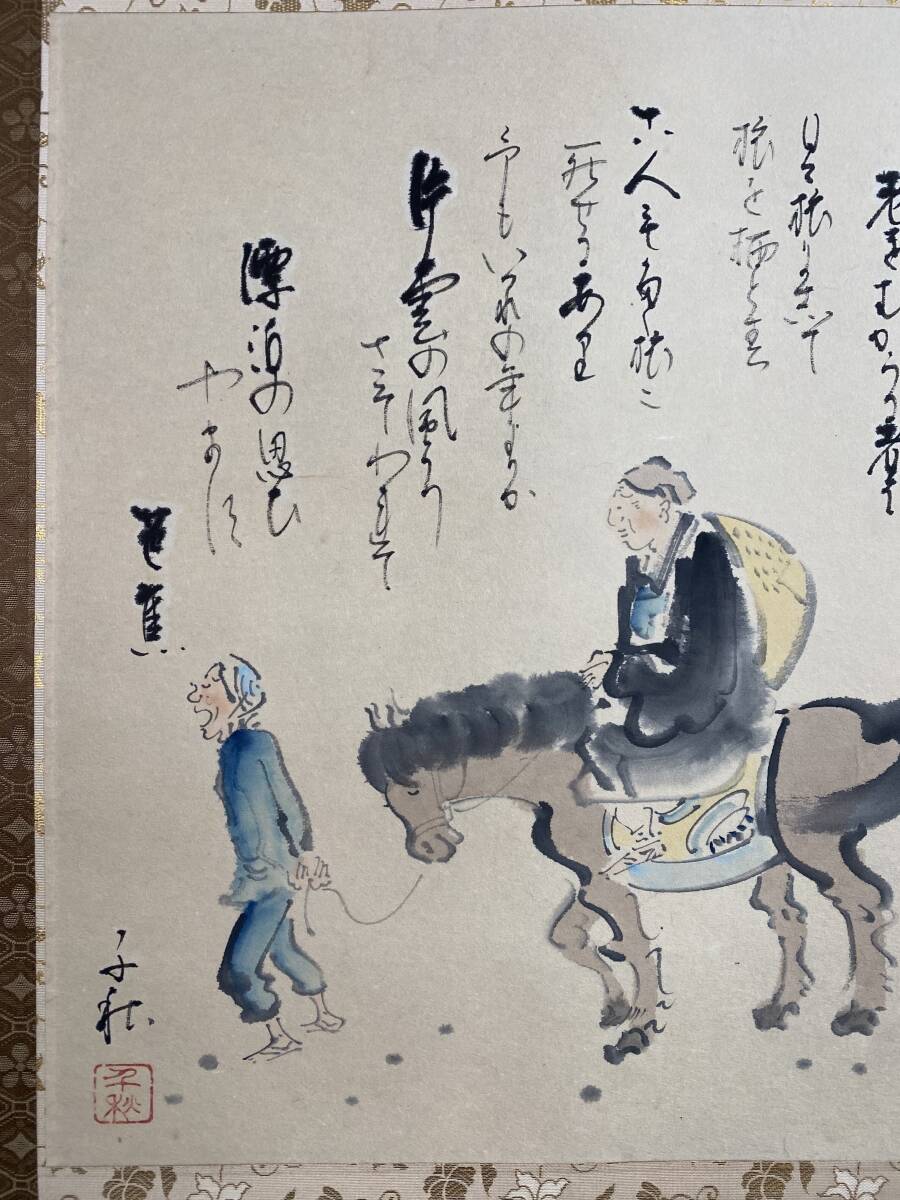 老をむかふる者は
日々旅にして
旅を栖とす
古人も多く旅に
死せるあり
予もいづれの年よりか
片雲の風に
さそわれて
漂泊の思ひ
やまず
芭蕉
千秋
千秋